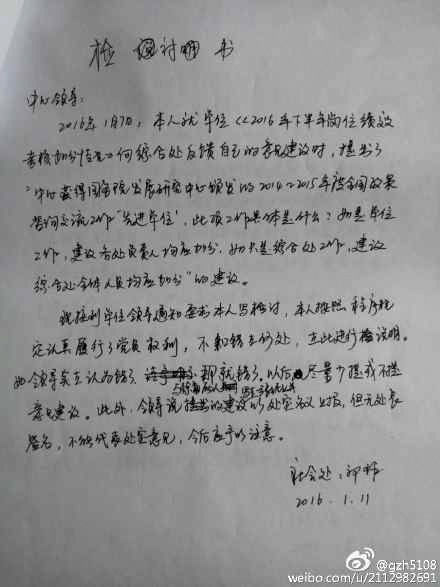 检讨书
中心领导:
2016年1月7日,本人就单位《2016年下半年岗位绩效
考核加分情况》向综合处反馈自己的意见建议时,提出了
“中心获得国务院发展研究中心颁发的2014-2015年度全国政策
咨询交流工作‘先进单位’,此项工作具体是什么?如是单位
工作,建议各处负责人均应加分,如只是综合处工作,建议
综合处全体人员均应加分”的建议。
我接到单位领导通知要求本人写检讨,本人按照程序规
定认真履行了党员权利,不知错在何处,在此进行检说明。
如领导实在认为错了 那就错了。以后尽量少提或不提
意见建议。此外,领导说提出的建议以处室名义上报,但无处长
签名,不能代表处室意见,今后应予以注意。
社会处:
2016.1.11
@gzh5108
weibo.com/u/2112982691